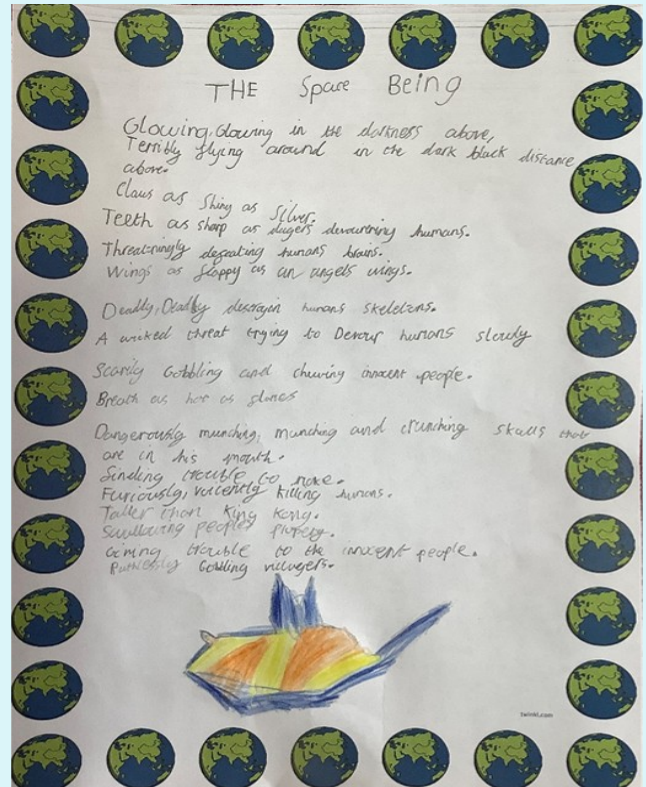 THE Space Being
Glowing, Glowing in the darkness above,
Terribly flying around in the dark black distance
above.
Claws as Shiny as Silver.
Teeth as sharp as dagers devourning humans.
Threatningly defeating humans brains.
Wings as floppy as an angels wings.
Deadly, Deadly humans skeletons.
A wicked threat trying to Devour humans slowly
Scarily Gobbling and chewing innocent people.
Breath as hot as
Dangerously munching, munching and crunching skulls that
are in his mouth.
trouble to make.
Furiously, killing humans.
Taller than King Kong.
people
trouble to the innocent people.
Gobbling villagers.
twinkl.com